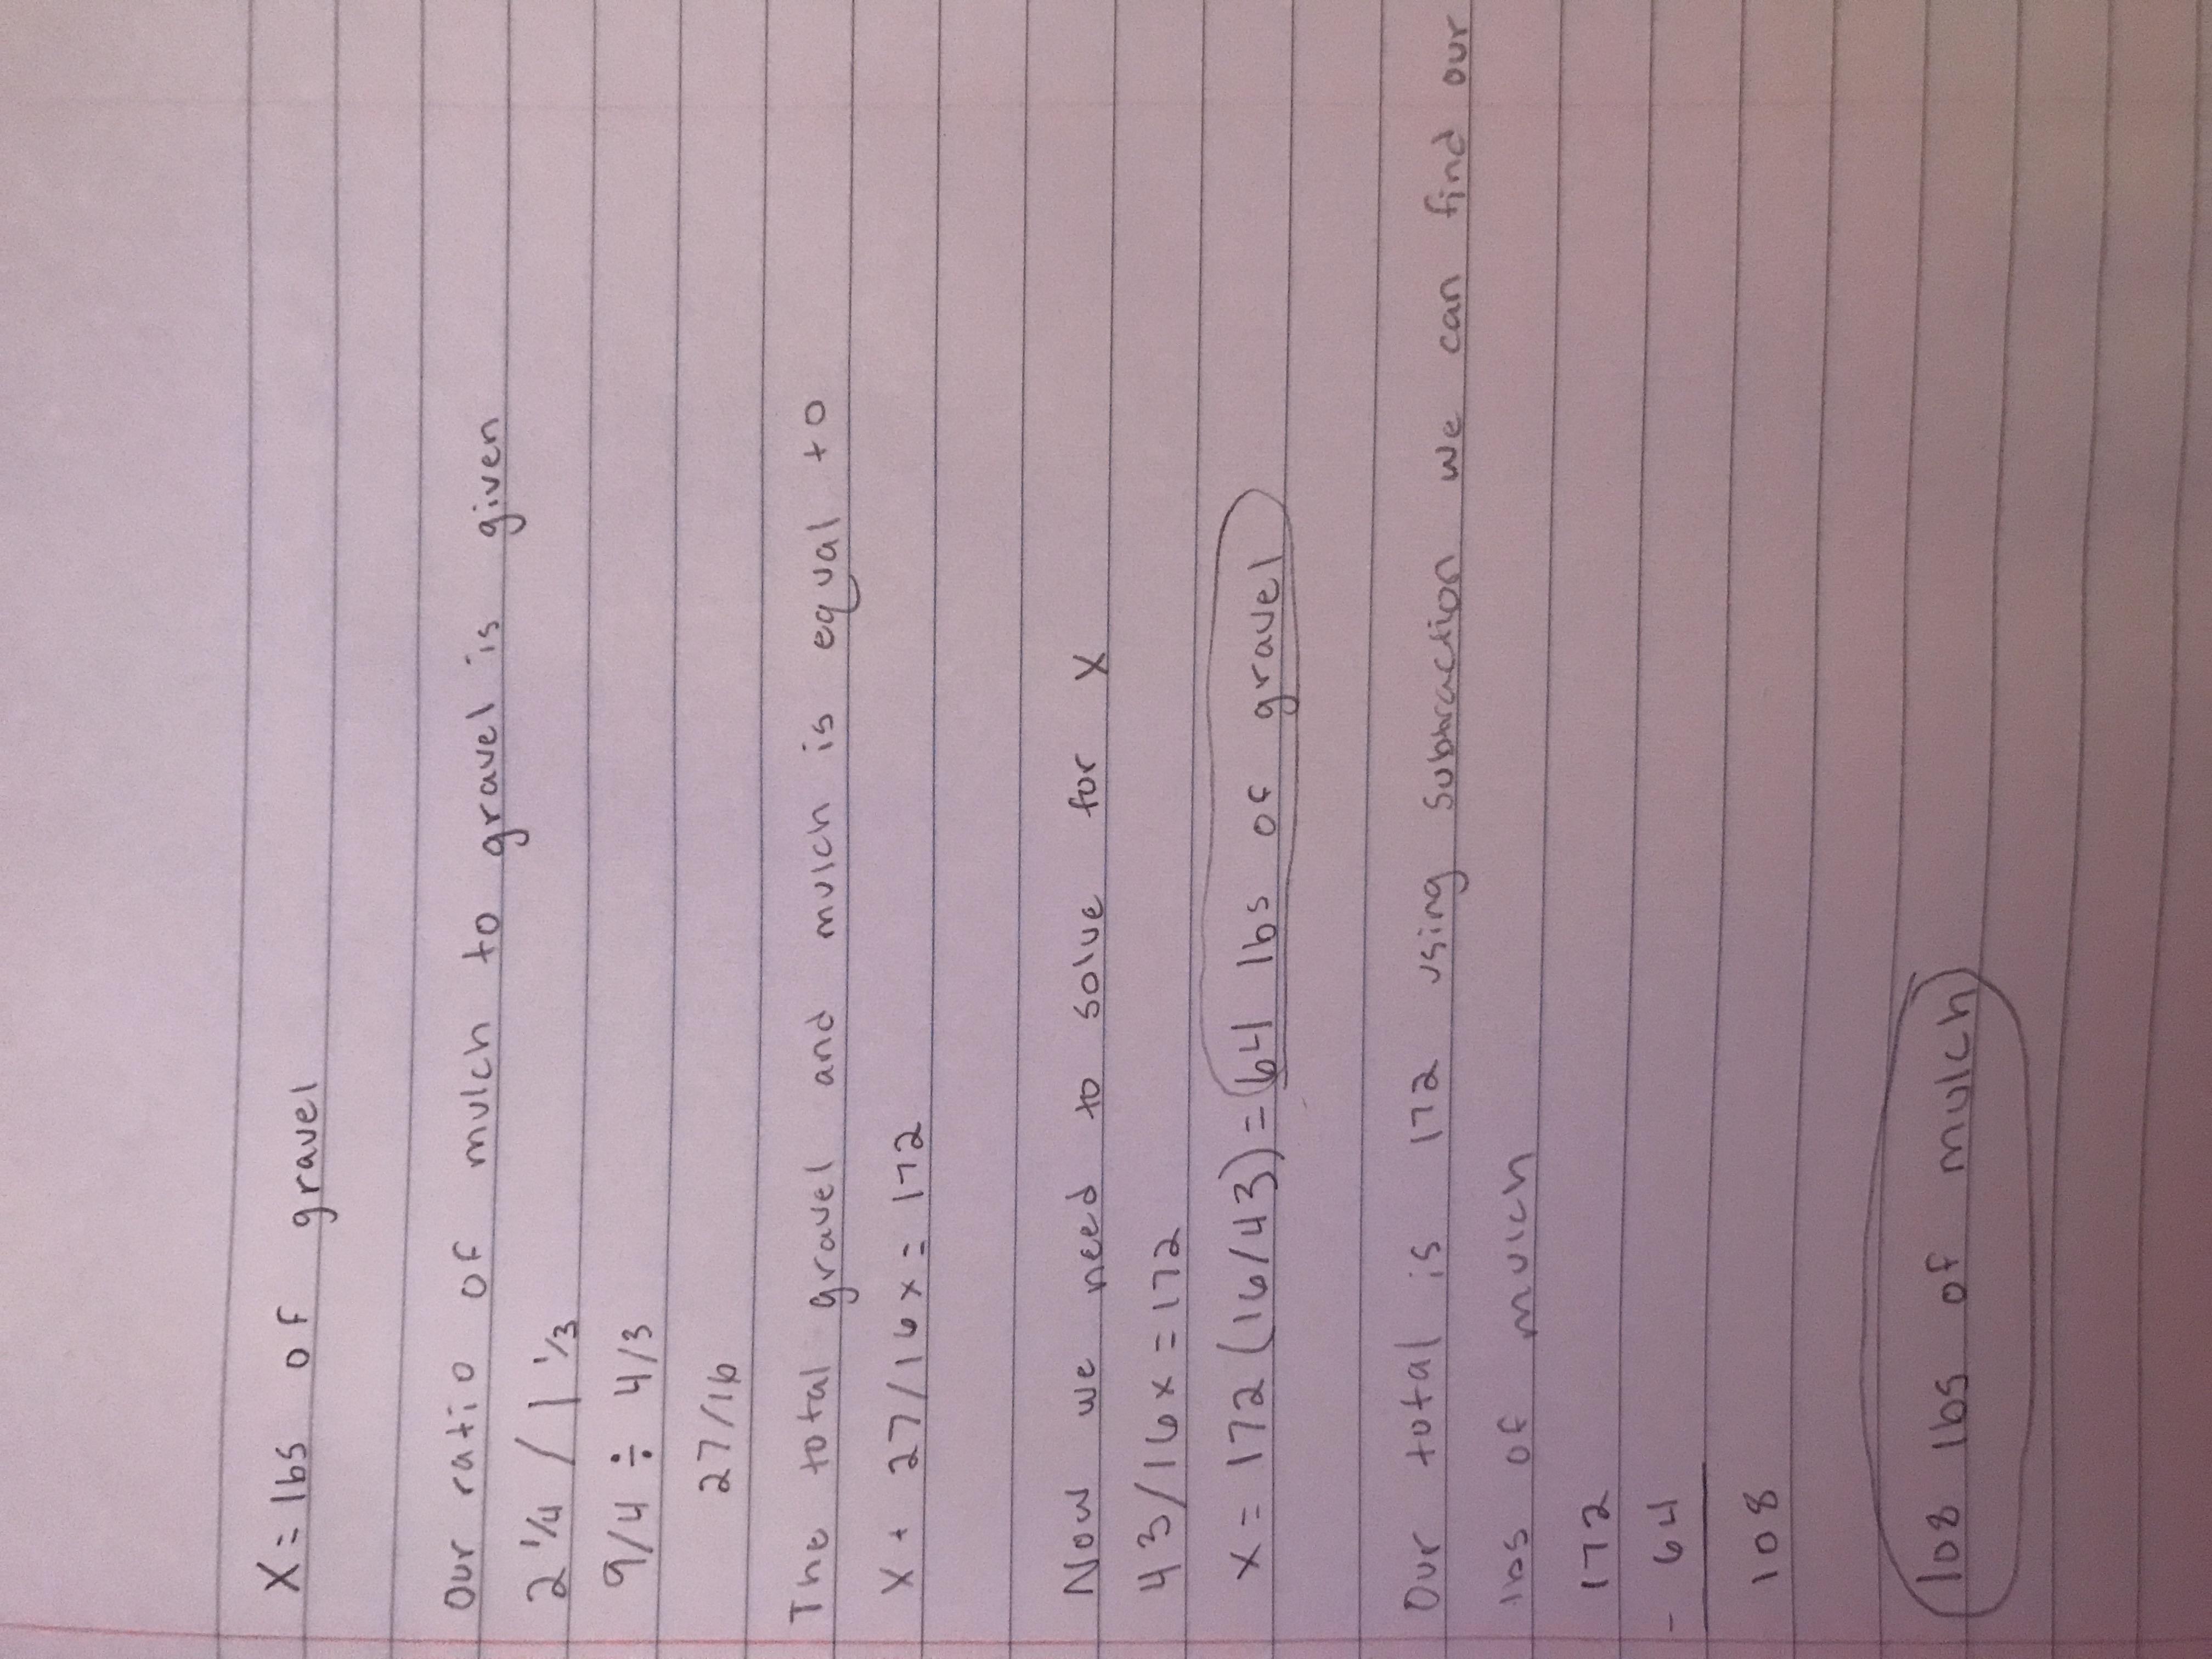 X = lbs of gravel
Our ratio of mulch to gravel is given
2 1/4 / 1 1/3
9/4 ÷ 4/3
27/16
The total gravel and mulch is equal to
X + 27/16x = 172
Now we need to solve for X
43/16x = 172
x = 172(16/43) = 64 lbs of gravel
Our total is 172 using subtraction we can find our
lbs of mulch
172
- 64
108
108 lbs of mulch